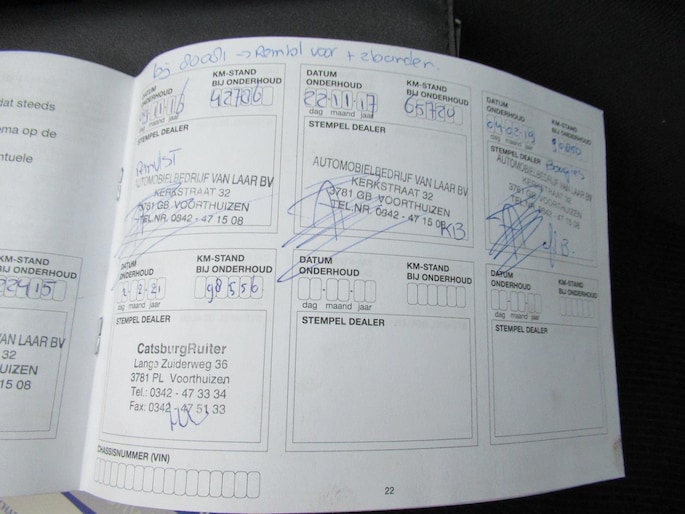 dat steeds
ema op de
ntuele
KM-STAND
BIJ ONDERHOUD
22415
VAN LAAR BV
32
15 08
bij 80081 → Rembl voor + 2 banden.
DATUM
ONDERHOUD
KM-STAND
BIJ ONDERHOUD
11 16
42706
dag maand jaar
STEMPEL DEALER
AUTOMOBIELBEDRIJF VAN LAAR BV
KERKSTRAAT 32
3781 GB VOORTHUIZEN
TEL.NR. 0342 - 47 15 08
DATUM
ONDERHOUD
KM-STAND
BIJ ONDERHOUD
22 11 17
65720
dag maand jaar
STEMPEL DEALER
AUTOMOBIELBEDRIJF VAN LAAR BV
KERKSTRAAT 32
3781 GB VOORTHUIZEN
TEL.NR. 0342 - 47 15 08
KB
DATUM
ONDERHOUD
KM-STAND
BIJ ONDERHOUD
04 02 19
dag maand jaar
STEMPEL DEALER
Bougies
AUTOMOBIELBEDRIJF VAN LAAR BV
KERKSTRAAT 32
3781 GB VOORTHUIZEN
DATUM
ONDERHOUD
KM-STAND
BIJ ONDERHOUD
2 2 21
98556
dag maand jaar
STEMPEL DEALER
CatsburgRuiter
Lange Zuiderweg 36
3781 PL Voorthuizen
Tel.: 0342 - 47 33 34
Fax: 0342 - 47 51 33
DATUM
ONDERHOUD
KM-STAND
BIJ ONDERHOUD
dag maand jaar
STEMPEL DEALER
DATUM
ONDERHOUD
KM-STAND
BIJ ONDERHOUD
dag maand jaar
STEMPEL DEALER
CHASSISNUMMER (VIN)
22